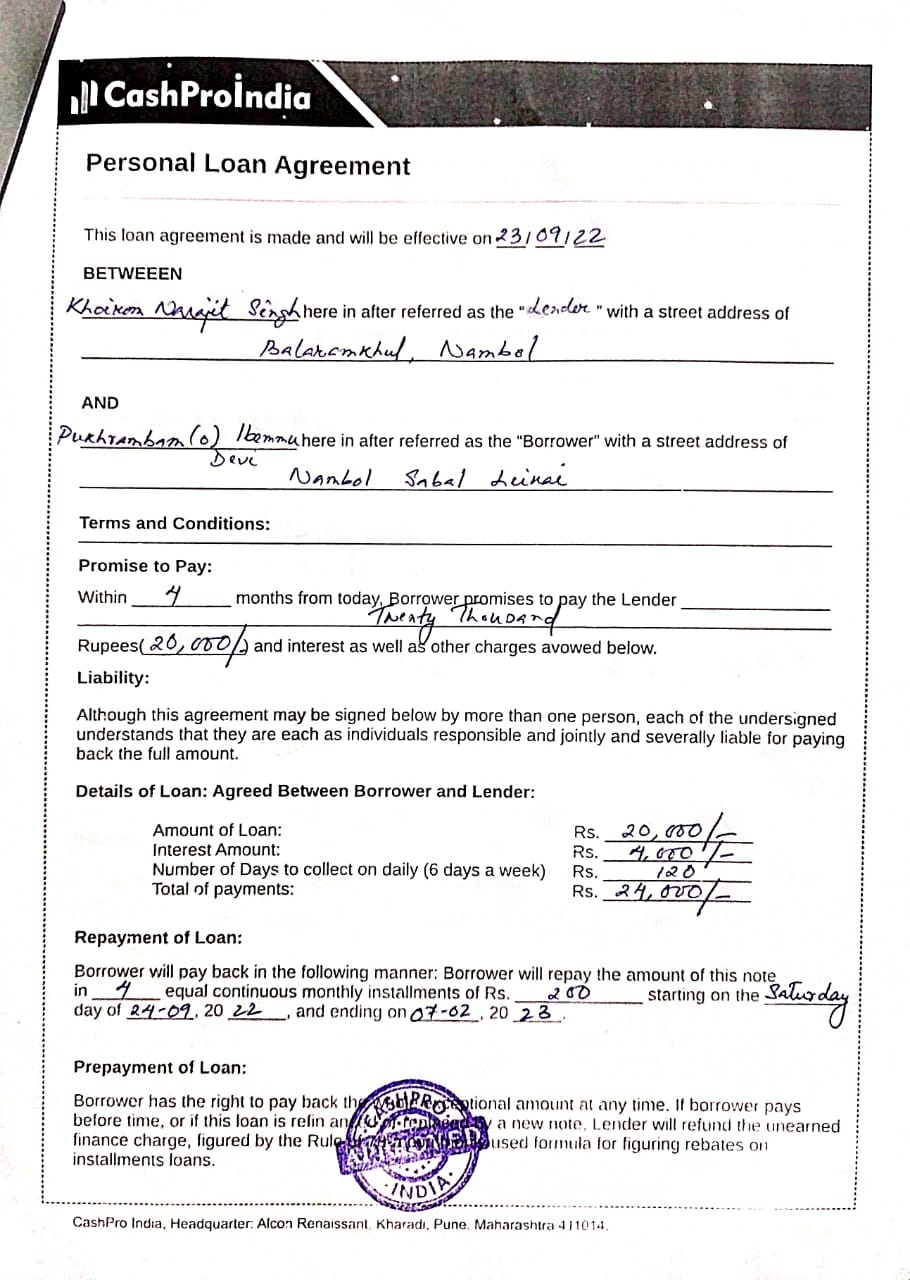 CashProIndia
Personal Loan Agreement
This loan agreement is made and will be effective on 23/09/22
BETWEEEN
Khoirom Narajit Singh here in after referred as the "Lender" with a street address of
Balaramkhul, Nambol
AND
Pukhrambam (o) Ibemnu here in after referred as the "Borrower" with a street address of
Devi
Nambol Sabal Leikai
Terms and Conditions:
Promise to Pay:
Within 4 months from today, Borrower promises to pay the Lender
Twenty Thousand
Rupees(20,000/-) and interest as well as other charges avowed below.
Liability:
Although this agreement may be signed below by more than one person, each of the undersigned
understands that they are each as individuals responsible and jointly and severally liable for paying
back the full amount.
Details of Loan: Agreed Between Borrower and Lender:
Amount of Loan: Rs. 20,000/-
Interest Amount: Rs. 4,000/-
Number of Days to collect on daily (6 days a week) Rs. 120
Total of payments: Rs. 24,000/-
Repayment of Loan:
Borrower will pay back in the following manner: Borrower will repay the amount of this note
in 4 equal continuous monthly installments of Rs. 200 starting on the Saturday
day of 24-09, 20 22, and ending on 07-02, 20 23.
Prepayment of Loan:
Borrower has the right to pay back the amount at any time. If borrower pays
before time, or if this loan is refin a new note, Lender will refund the unearned
finance charge, figured by the Rule used formula for figuring rebates on
installments loans.
CASHPRO
INDIA
CashPro India, Headquarter: Alcon Renaissant, Kharadi, Pune, Maharashtra 411014.